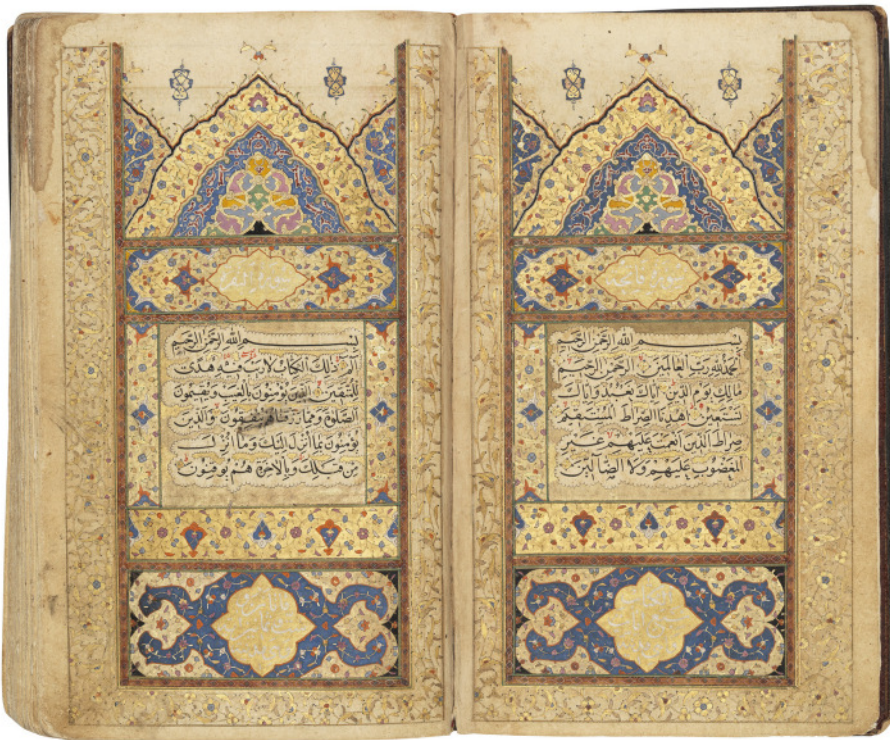 سورة الفاتحة
بسم الله الرحمن الرحيم
الحمد لله رب العالمين الرحمن الرحيم
مالك يوم الدين اياك نعبد واياك
نستعين اهدنا الصراط المستقيم
صراط الذين انعمت عليهم غير
المغضوب عليهم ولا الضالين
سورة البقرة
بسم الله الرحمن الرحيم
الم ذلك الكتاب لا ريب فيه هدى
للمتقين الذين يؤمنون بالغيب ويقيمون
الصلوة ومما رزقناهم ينفقون والذين
يؤمنون بما انزل اليك وما انزل
من قبلك وبالاخرة هم يوقنون